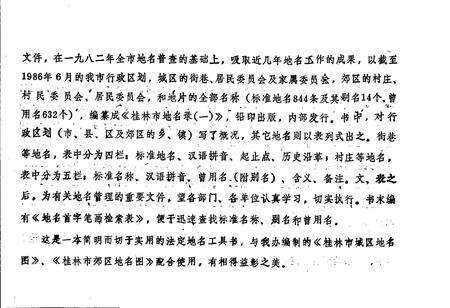 文件，在一九八二年全市地名普查的基础上，吸取近几年地名工作的成果，以截至
1986年6月的我市行政区划，城区的街巷、居民委员会及家属委员会，郊区的村庄、
村民委员会、居民委员会，和地片的全部名称（标准地名844条及其别名14个、曾
用名632个），编纂成《桂林市地名录(一)》，铅印出版，内部发行。书中，对行
政区划（市、县、区及郊区的乡、镇）写了概况，其它地名则以表列式出之。街巷
等地名，表中分为四栏：标准地名、汉语拼音、起止点、历史沿革；村庄等地名，
表中分为五栏：标准名称、汉语拼音、曾用名（附别名）、含义、备注。文、表之
后，为有关地名管理的重要文件，望各部门、各单位认真学习，切实执行。书末编
有《地名首字笔画检索表》，便于迅速查找标准名称、别名和曾用名。
这是一本简明而切于实用的法定地名工具书，与我办编制的《桂林市城区地名
图》、《桂林市郊区地名图》配合使用，有相得益彰之美。